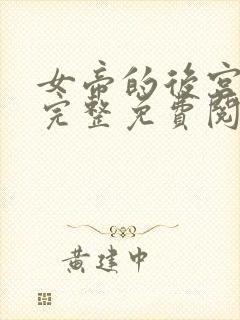 女帝的後宮
完整免費閱
黃建中